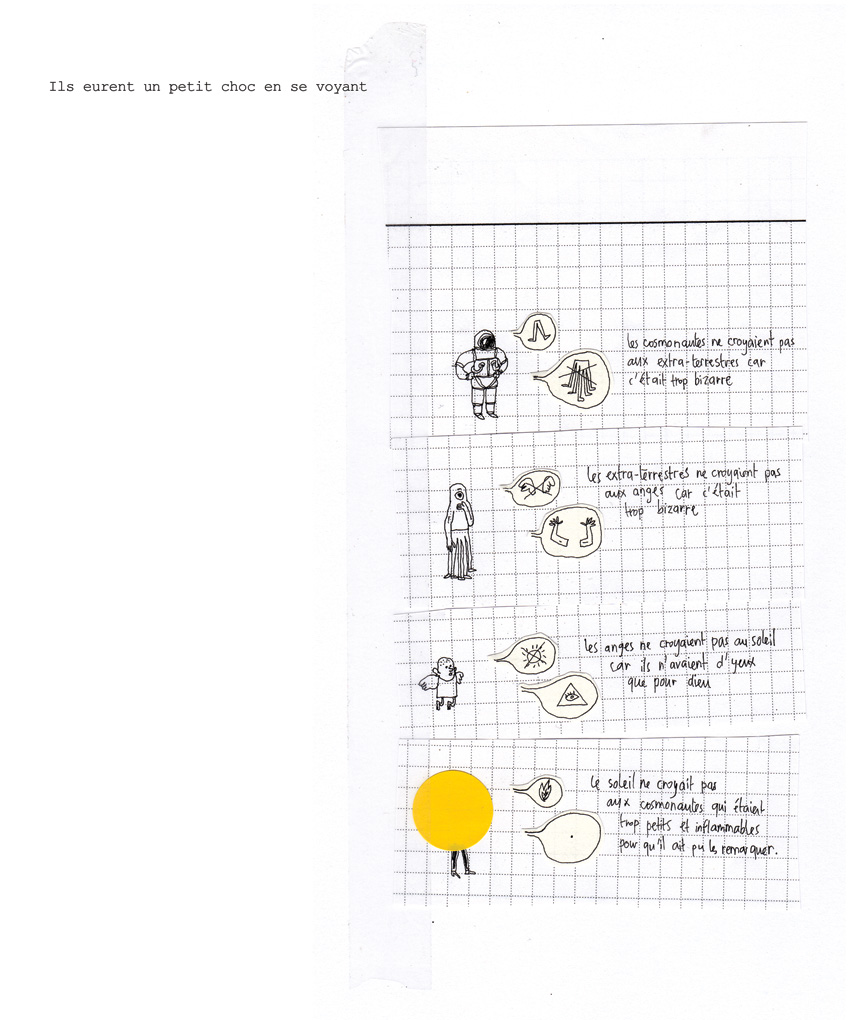 Ils eurent un petit choc en se voyant
les cosmonautes ne croyaient pas
aux extra-terrestres car
c'était trop bizarre
les extra-terrestres ne croyaient pas
aux anges car c'était
trop bizarre
les anges ne croyaient pas au soleil
car ils n'avaient d'yeux
que pour dieu
le soleil ne croyait pas
aux cosmonautes qui étaient
trop petits et inflammables
pour qu'il ait pu les remarquer.